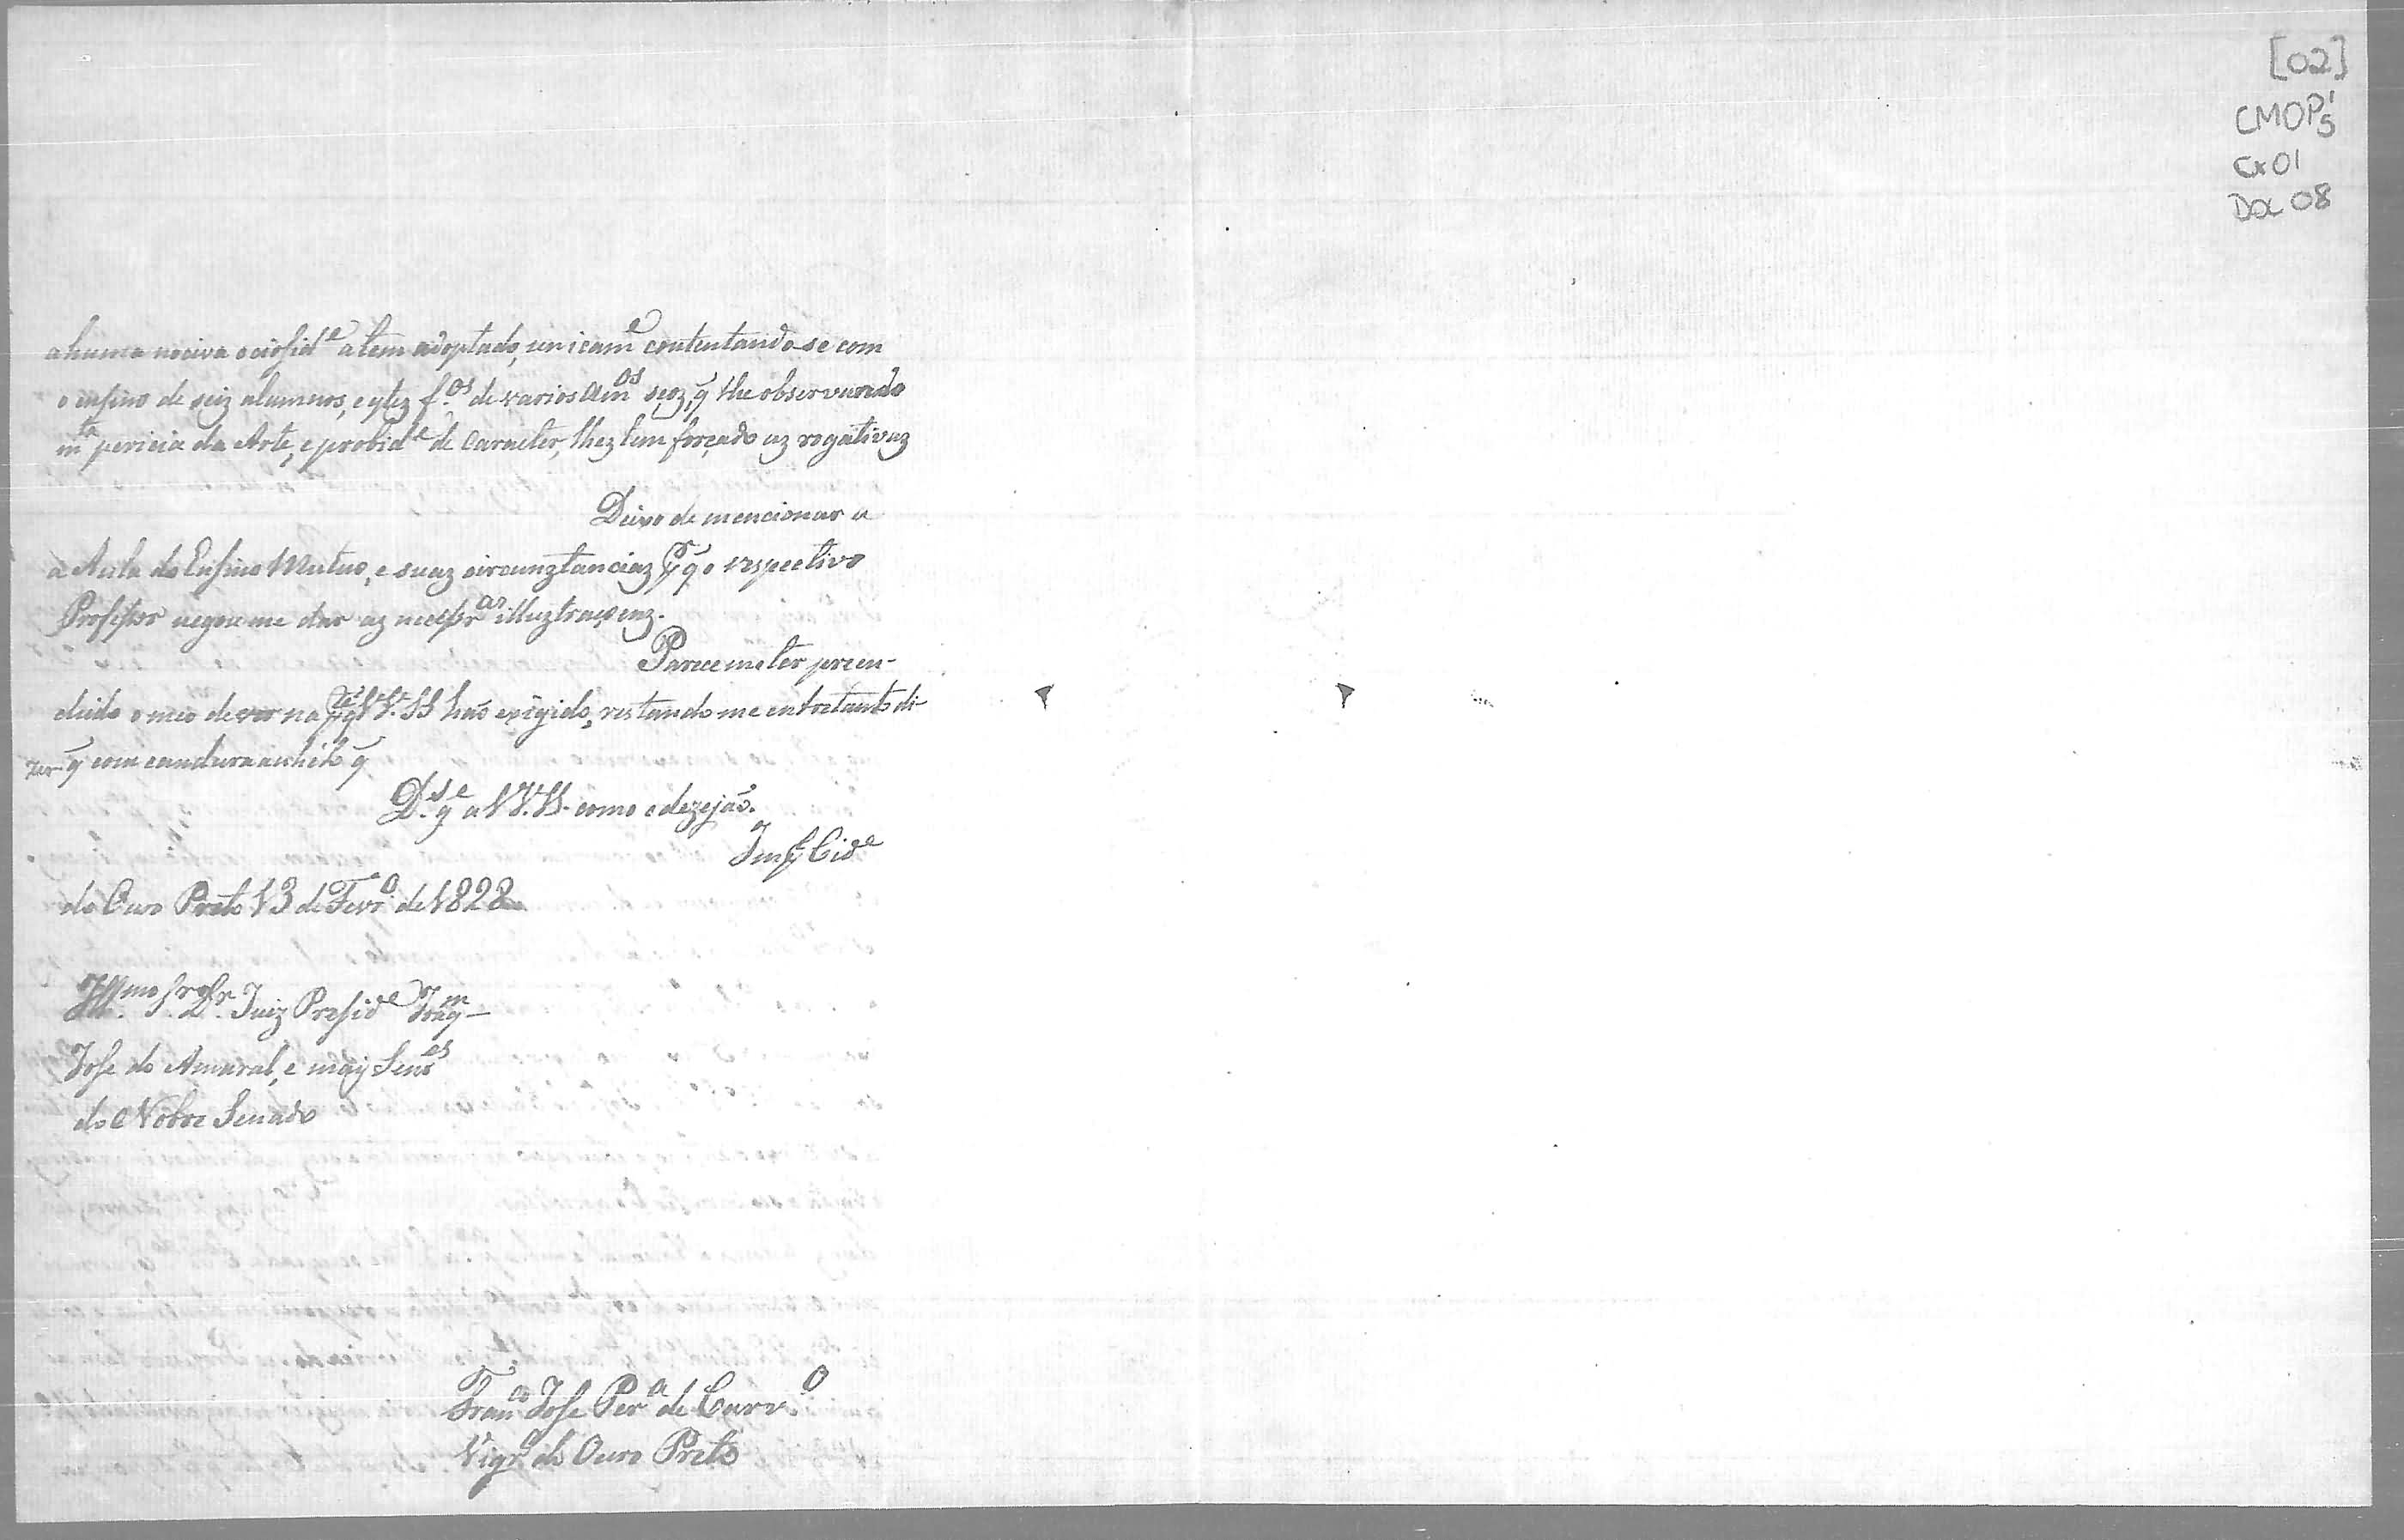 [02]
CMOP
Cx 01
Doc 08
a huma nociva ociosid.e a tem adoptado, unicam.e contentando-se com
o ensino de seiz alumnos, e estez f.os de varios Am.os seoz, q̃ lhe observando
m.ta pericia da Arte, e probid.e de Caracter, lhez tem forçado az rogativaz
Deixo de mencionar a
a Aula do Ensino Mutuo, e suaz circunztanciaz q̃ o respectivo
Professor negou me dar az necessr.as illuztraçoenz.
Parece me ter preen-
chido o meo dever na p.te q̃ VV. SS. haõ exigido, restando me entretanto di-
zer q̃ com candura q̃
D.s g.e a VV. SS. como e dezejaõ.
Imp.l Cid.e
do Ouro Preto 13 de Fevr.o de 1828
Ill.mo Sr. Dr. Juiz Presid.e Joaq.m
Jose do Amaral, e maiz Senr.es
do Nobre Senado
Fran.co Jose Per.a de Carv.o
Vigr.o do Ouro Preto